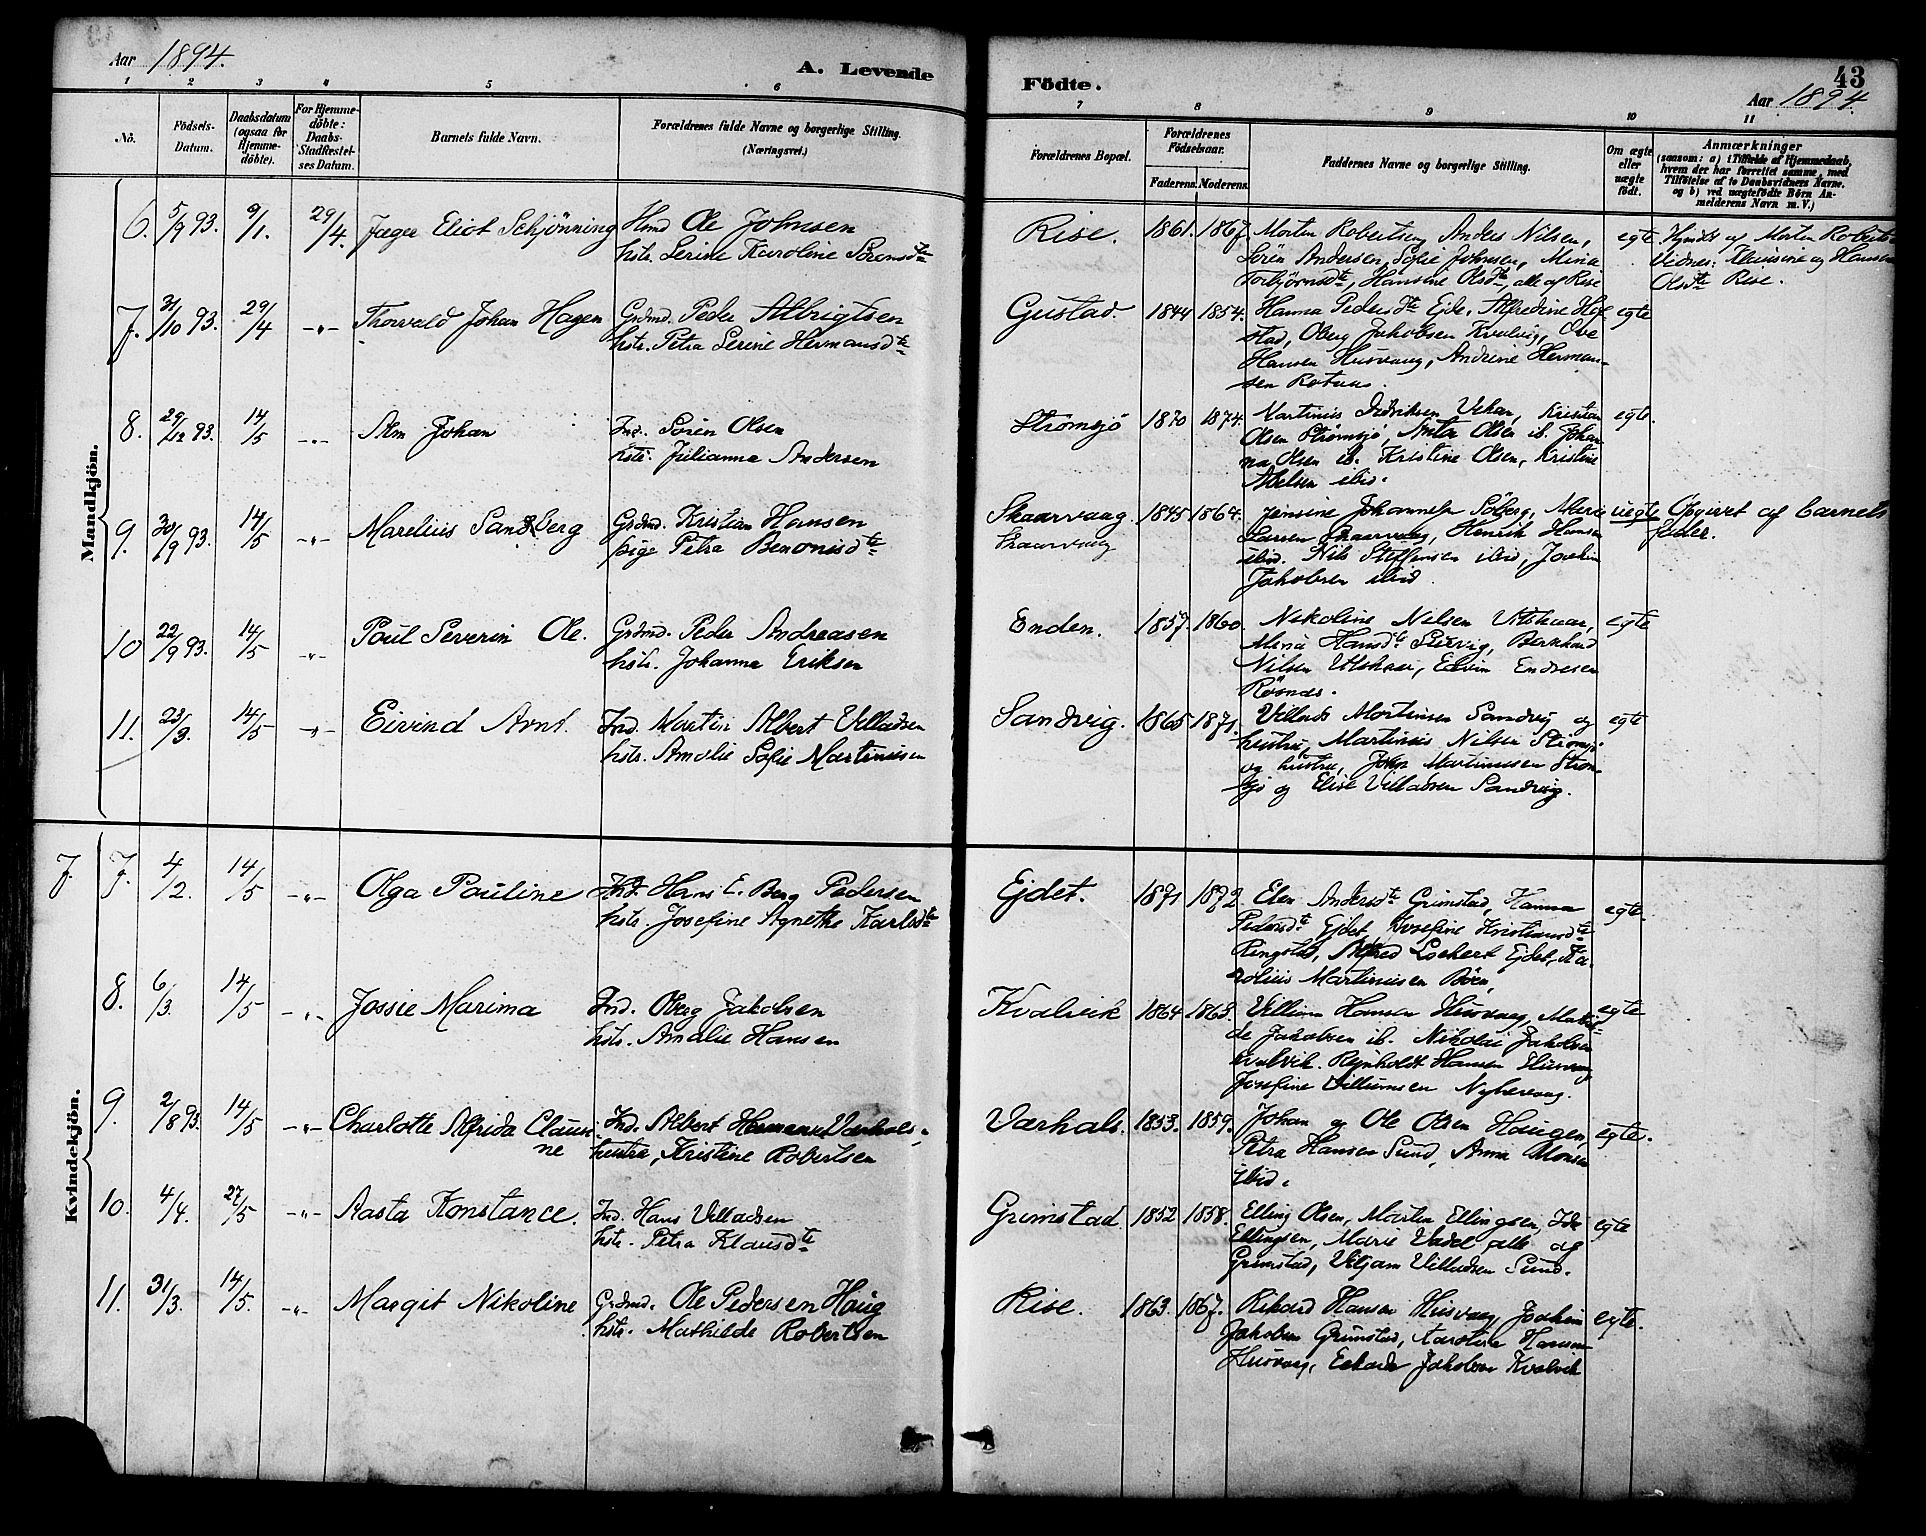 Aar 1894.
A. Levende
Födte.
43
Aar 1894.
1 2 3 4 5 6 7 8 9 10 11
No.
Födsels-Datum.
Daabsdatum (ogsaa för Hjemme-döbte).
For Hjemme-döbte: Daabs-Stadfæstelses Datum.
Barnets fulde Navn.
Forældrenes fulde Navne og borgerlige Stilling. (Næringsvei.)
Forældrenes Bopæl.
Forældrenes Födselsaar.
Faderens. Moderens.
Faddernes Navne og borgerlige Stilling.
Om ægte eller uægte födt.
Anmærkninger
(saasom: a) i Tilfælde af Hjemmedaab,
hvem der har forrettet samme, med
Tilföielse af to Daabsvidners Navne,
og b) ved uægtefödte Börn An-
melderens Navn m. V.)
Mandkjön.
6. 5/9 93. 9/1. 29/4. Jæger Eliot Schjønning Hmd Ole Johnsen Rise. 1861. 1867. Morten Robertsen, Anders Nilsen, egte Hjmdbt af Morten Roberts-
hstr. Serine Karoline Sørensdte Sørén Andersen, Sofie Johnsen, Mina Vidner: og Hansine
Torbjørnsdte, Hansine Olsdte, alle af Rise Olsdte Rise.
7. 31/10 93. 29/4 -"- Thorvald Johan Hagen Grdmd. Peder Albrigtsen Gustad. 1844 1854. Hanna Pedersdte Ejde, Alfredine Hof- egte
hstr. Petra Serine Hermansdte stad, Oberg Jakobsen Kvalvig, Ove
Hansen Husvaag, Andrine Herman-
sen Rotvaas.
8. 29/12 93. 14/5 -"- Alm Johan Ind. Søren Olsen Strømsjø 1870 1874. Martinus Fredriksen Kristian egte.
hstr. Julianna Andersen Olsen Strømsjø, Anta Olsen ib. Johan-
na Olsen ib. Kristine Olsen, Kristine
Abelsen ibid.
9. 30/9 93. 14/5 -"- Marelius Sandberg Grdmd. Kristian Hansen Skaarvaag. 1845 1864. Jensine Johannesen Søberg, uegte Opgivet af barnets
pige Petra Benonisdte Skaarvaag Larsen Skaarvaag, Henrik Hansen fader.
ibid. Nils Steffensen ibid, Joakim
Jakobsen ibid.
10 22/9 93. 14/5 -"- Paul Severin Ole. Grdmd. Peder Andreasen Enden. 1857. 1860. Nikoline Nilsen Utskaar, egte
hstr. Johanna Eriksen Mina Hansdte Bernhard
Nilsen Utskaar, Edvin Endresen
Røsnes.
11. 23/3. 14/5 -"- Eivind Arnt. Ind. Martin Albert Villadsen Sandvig. 1865 1871. Villads Mortensen Sandvig og egte
hstr. Amalie Sofie Martinusen hustru, Martinus Nilsen Strømsjø
og hustru, Johan Martinussen Strøm-
sjø og Elise Villadsen Sandvig.
Kvindekjön.
7. 7. 4/2. 14/5 -"- Olga Pauline Ind. Hans E. Berg Pedersen Ejdet. 1871 1872. Elen Andersdte Grimstad, Hanna egte.
hstr. Josefine Agnethe Karlsdte Pedersdte Ejdet, Josefine Kristiansdte
Ringstad, Alfred Lockert Ejdet, Ka-
rolius Martinusen Bøen,
8. 6/3. 14/5 -"- Jossie Marima Ind. Oberg Jakobsen Kvalvik 1864 1863. Villiam Hansen Husvaag, Mathil- egte
hstr. Amalie Hansen de Jakobsen ib. Nikolai Jakobsen
Kvalvik. Reinholdt Hansen Husvaag
Josefine Villumsen Nyhesvaag.
9. 2/8 93. 14/5 -"- Charlotte Alfrida Claun- Ind. Albert Hermansen Varhals, Varhals. 1853. 1859. Johan og Ole Olsen Haugen, egte.
ne hustru, Kristine Robertsen Petra Hansen Sund, Anna Monsen
ibid.
10. 4/4. 27/5 -"- Aasta Konstance. Ind. Hans Villadsen Grimstad 1852 1858. Elling Olsen, Martin Ellingsen, Ida egte
hstr. Petra Klausdte Ellingsen, Marie Vadel alle af
Grimstad, Viljam Villadsen Sund.
11. 31/3. 14/5. -"- Margit Nikoline Grdmd. Ole Pedersen Haug Rise. 1863. 1867. Rikard Hansen Husvaag, Joakim egte.
hstr. Mathilde Robertsen Jakobsen Grimstad, Karoline Hansen
Husvaag, Jakobsen Kvalvik